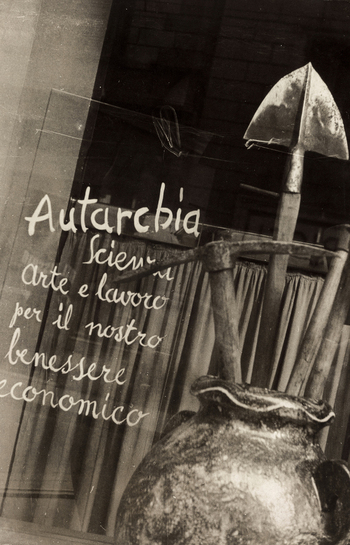 Autarchia
Scienza
Arte e lavoro
per il nostro
benessere
economico